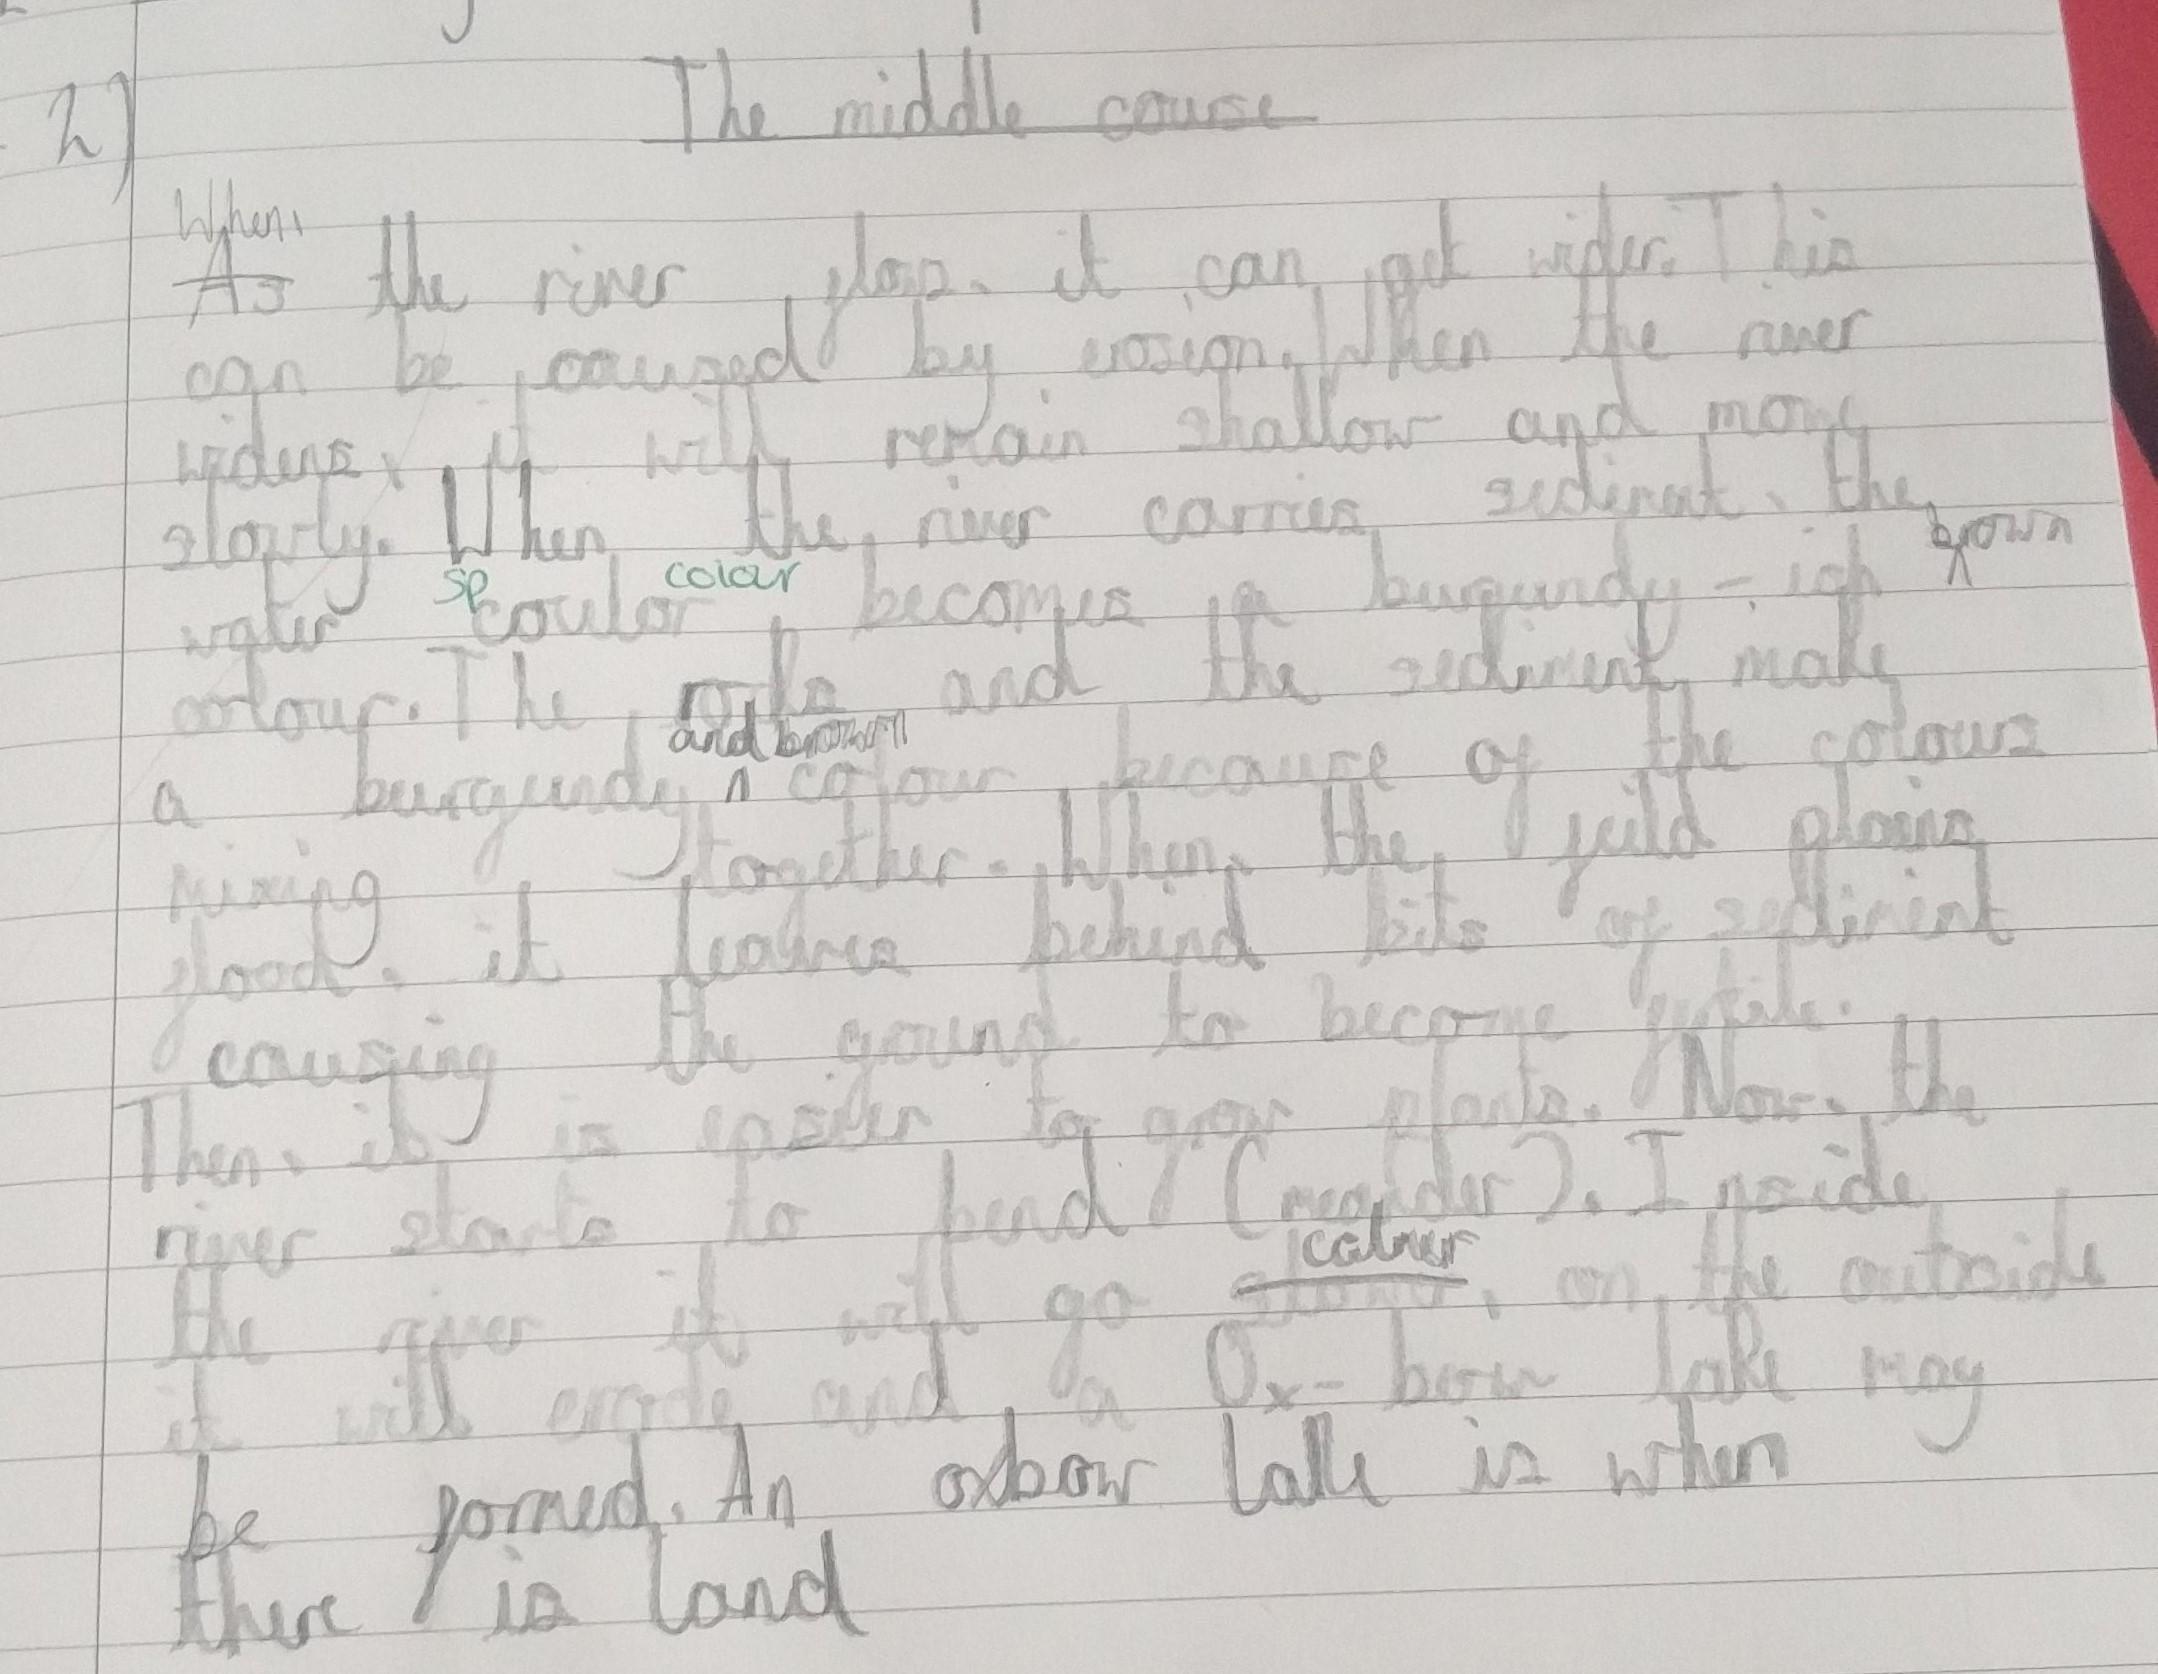 2)
The middle course
When
As the river flows, it can get wider. This
can be caused by erosion. When the river
widens, it will remain shallow and move
slowly. When the river carries sediment, the
brown
sp colour
water coulor becomes a burgundy-ish
colour. The rocks and the sediment make
and brown
a burgundy ^ colour because of the colours
mixing together. When the feild plains
flood, it leaves behind bits of sediment
causing the ground to become fertile.
Then, it is easier to grow plants. Now, the
river starts to bend (meander). Inside
the river it will go on the outside
it will erode and a Ox-bow lake may
be formed. An oxbow lake is when
there is land